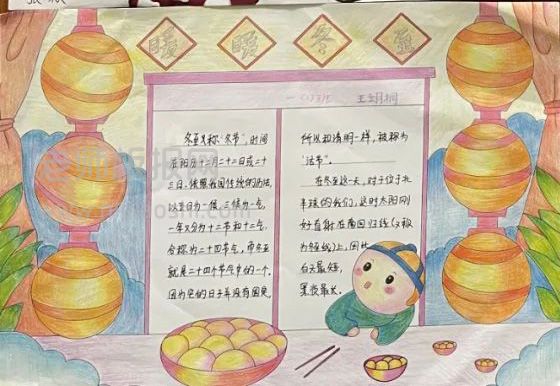 暖 暖 冬 至
一(1)班 王玥桐
冬至又称“冬节”,时间
在阳历十二月二十二日或二十
三日,依照我国传统的历法,
以五日为一候,三候为一气,
一年又分为十二节和十二气,
合称为二十四节气,而冬至
就是二十四个节气中的一个。
因为它的日子并没有固定,
所以和清明一样,被称为
“活节”。
在冬至这一天,对于位于北
半球的我们,这时太阳刚
好直射在南回归线(又称
为冬至线)上,因此
白天最短,
黑夜最长。